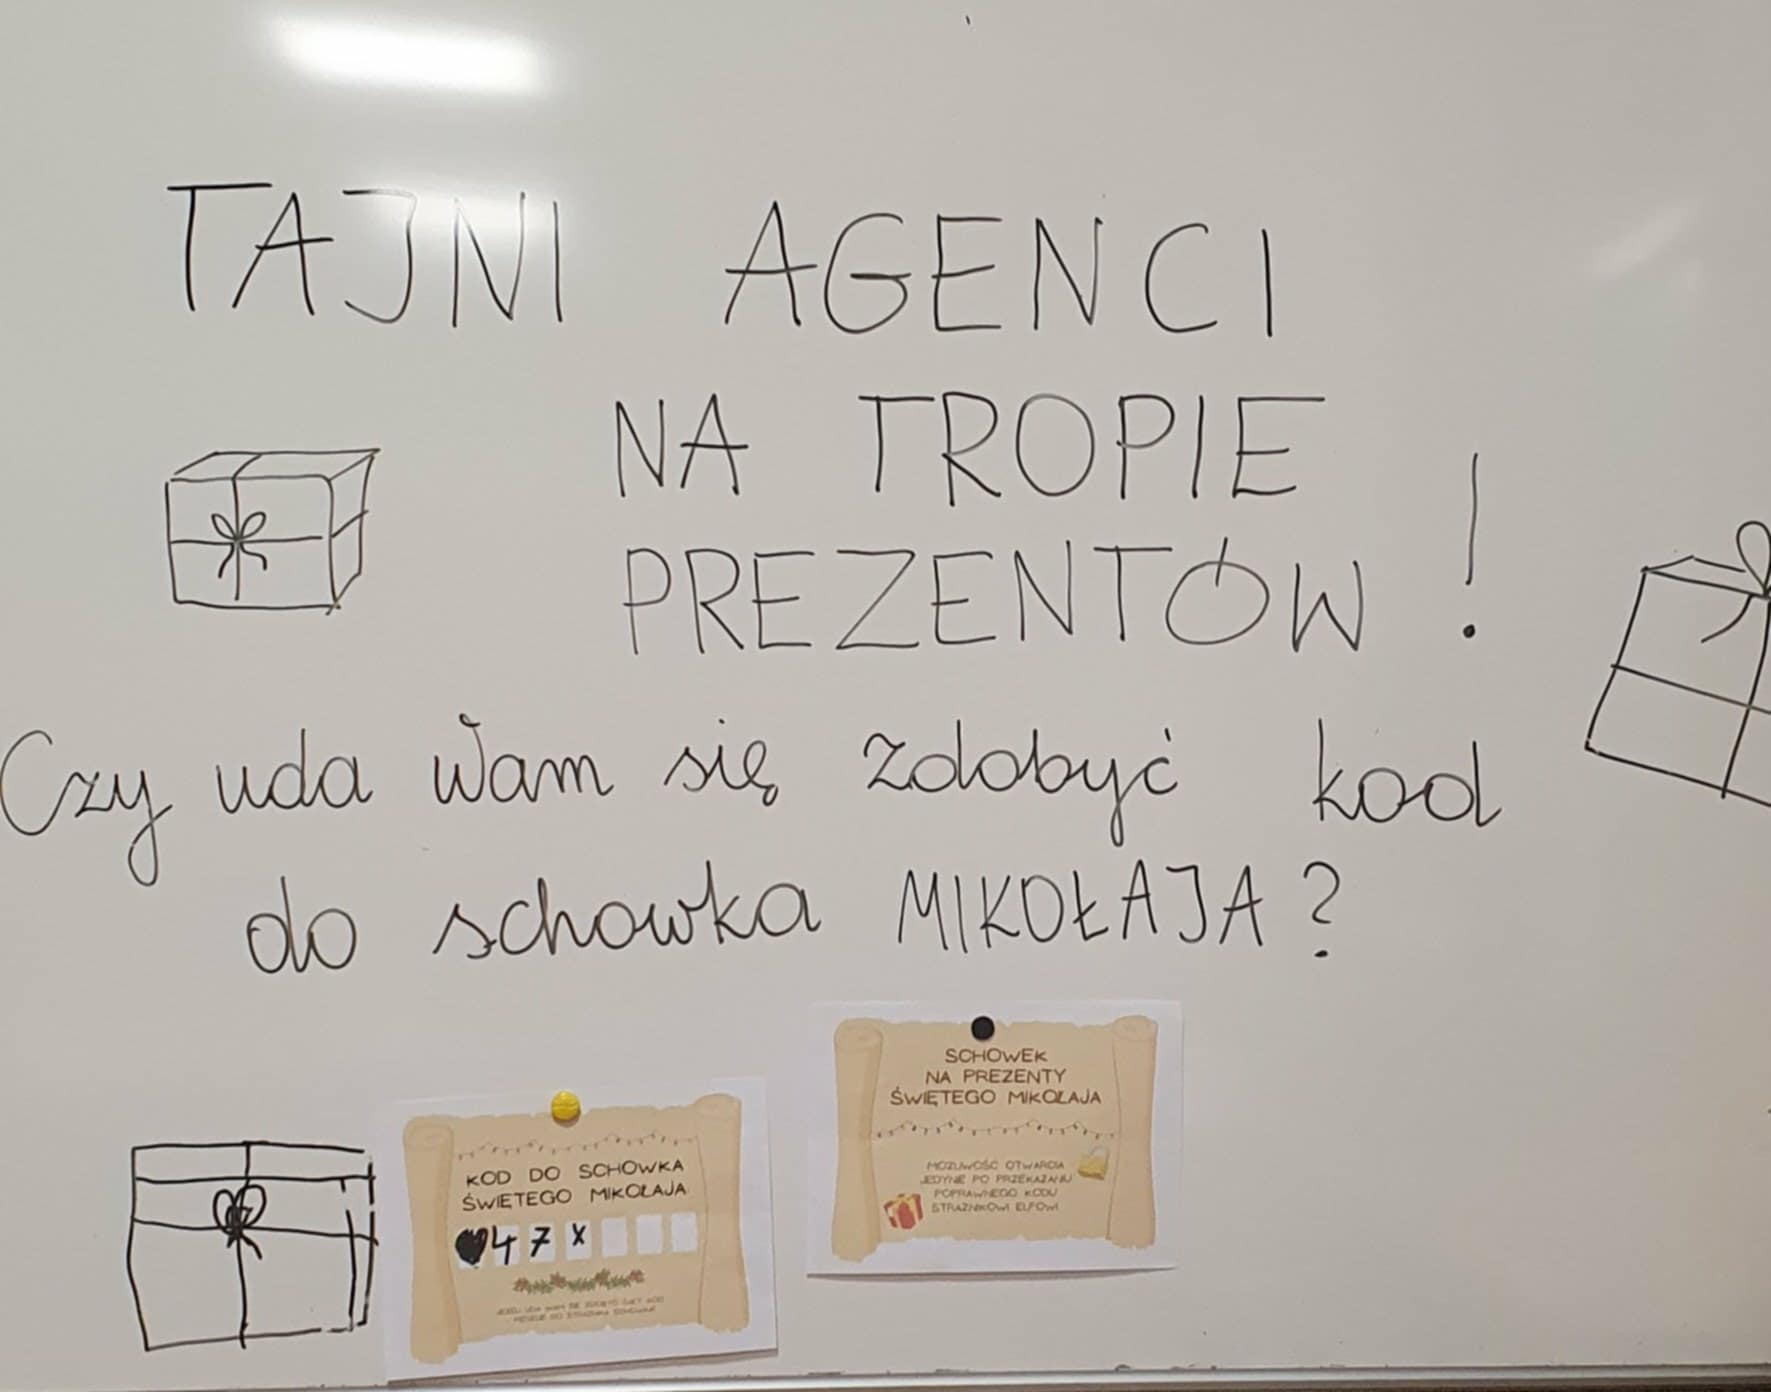 TAJNI AGENCI
NA TROPIE
PREZENTÓW!
Czy uda Wam się zdobyć kod
do schowka MIKOŁAJA?
SCHOWEK
NA PREZENTY
ŚWIĘTEGO MIKOŁAJA
MOŻLIWOŚĆ OTWARCIA
JEDYNIE PO PRZEKAZANIU
POPRAWNEGO KODU
STRAŻNIKOWI ELFOWI
KOD DO SCHOWKA
ŚWIĘTEGO MIKOŁAJA
♥ 4 7 x